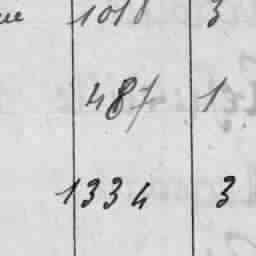 1018 3
487 1
1334 3